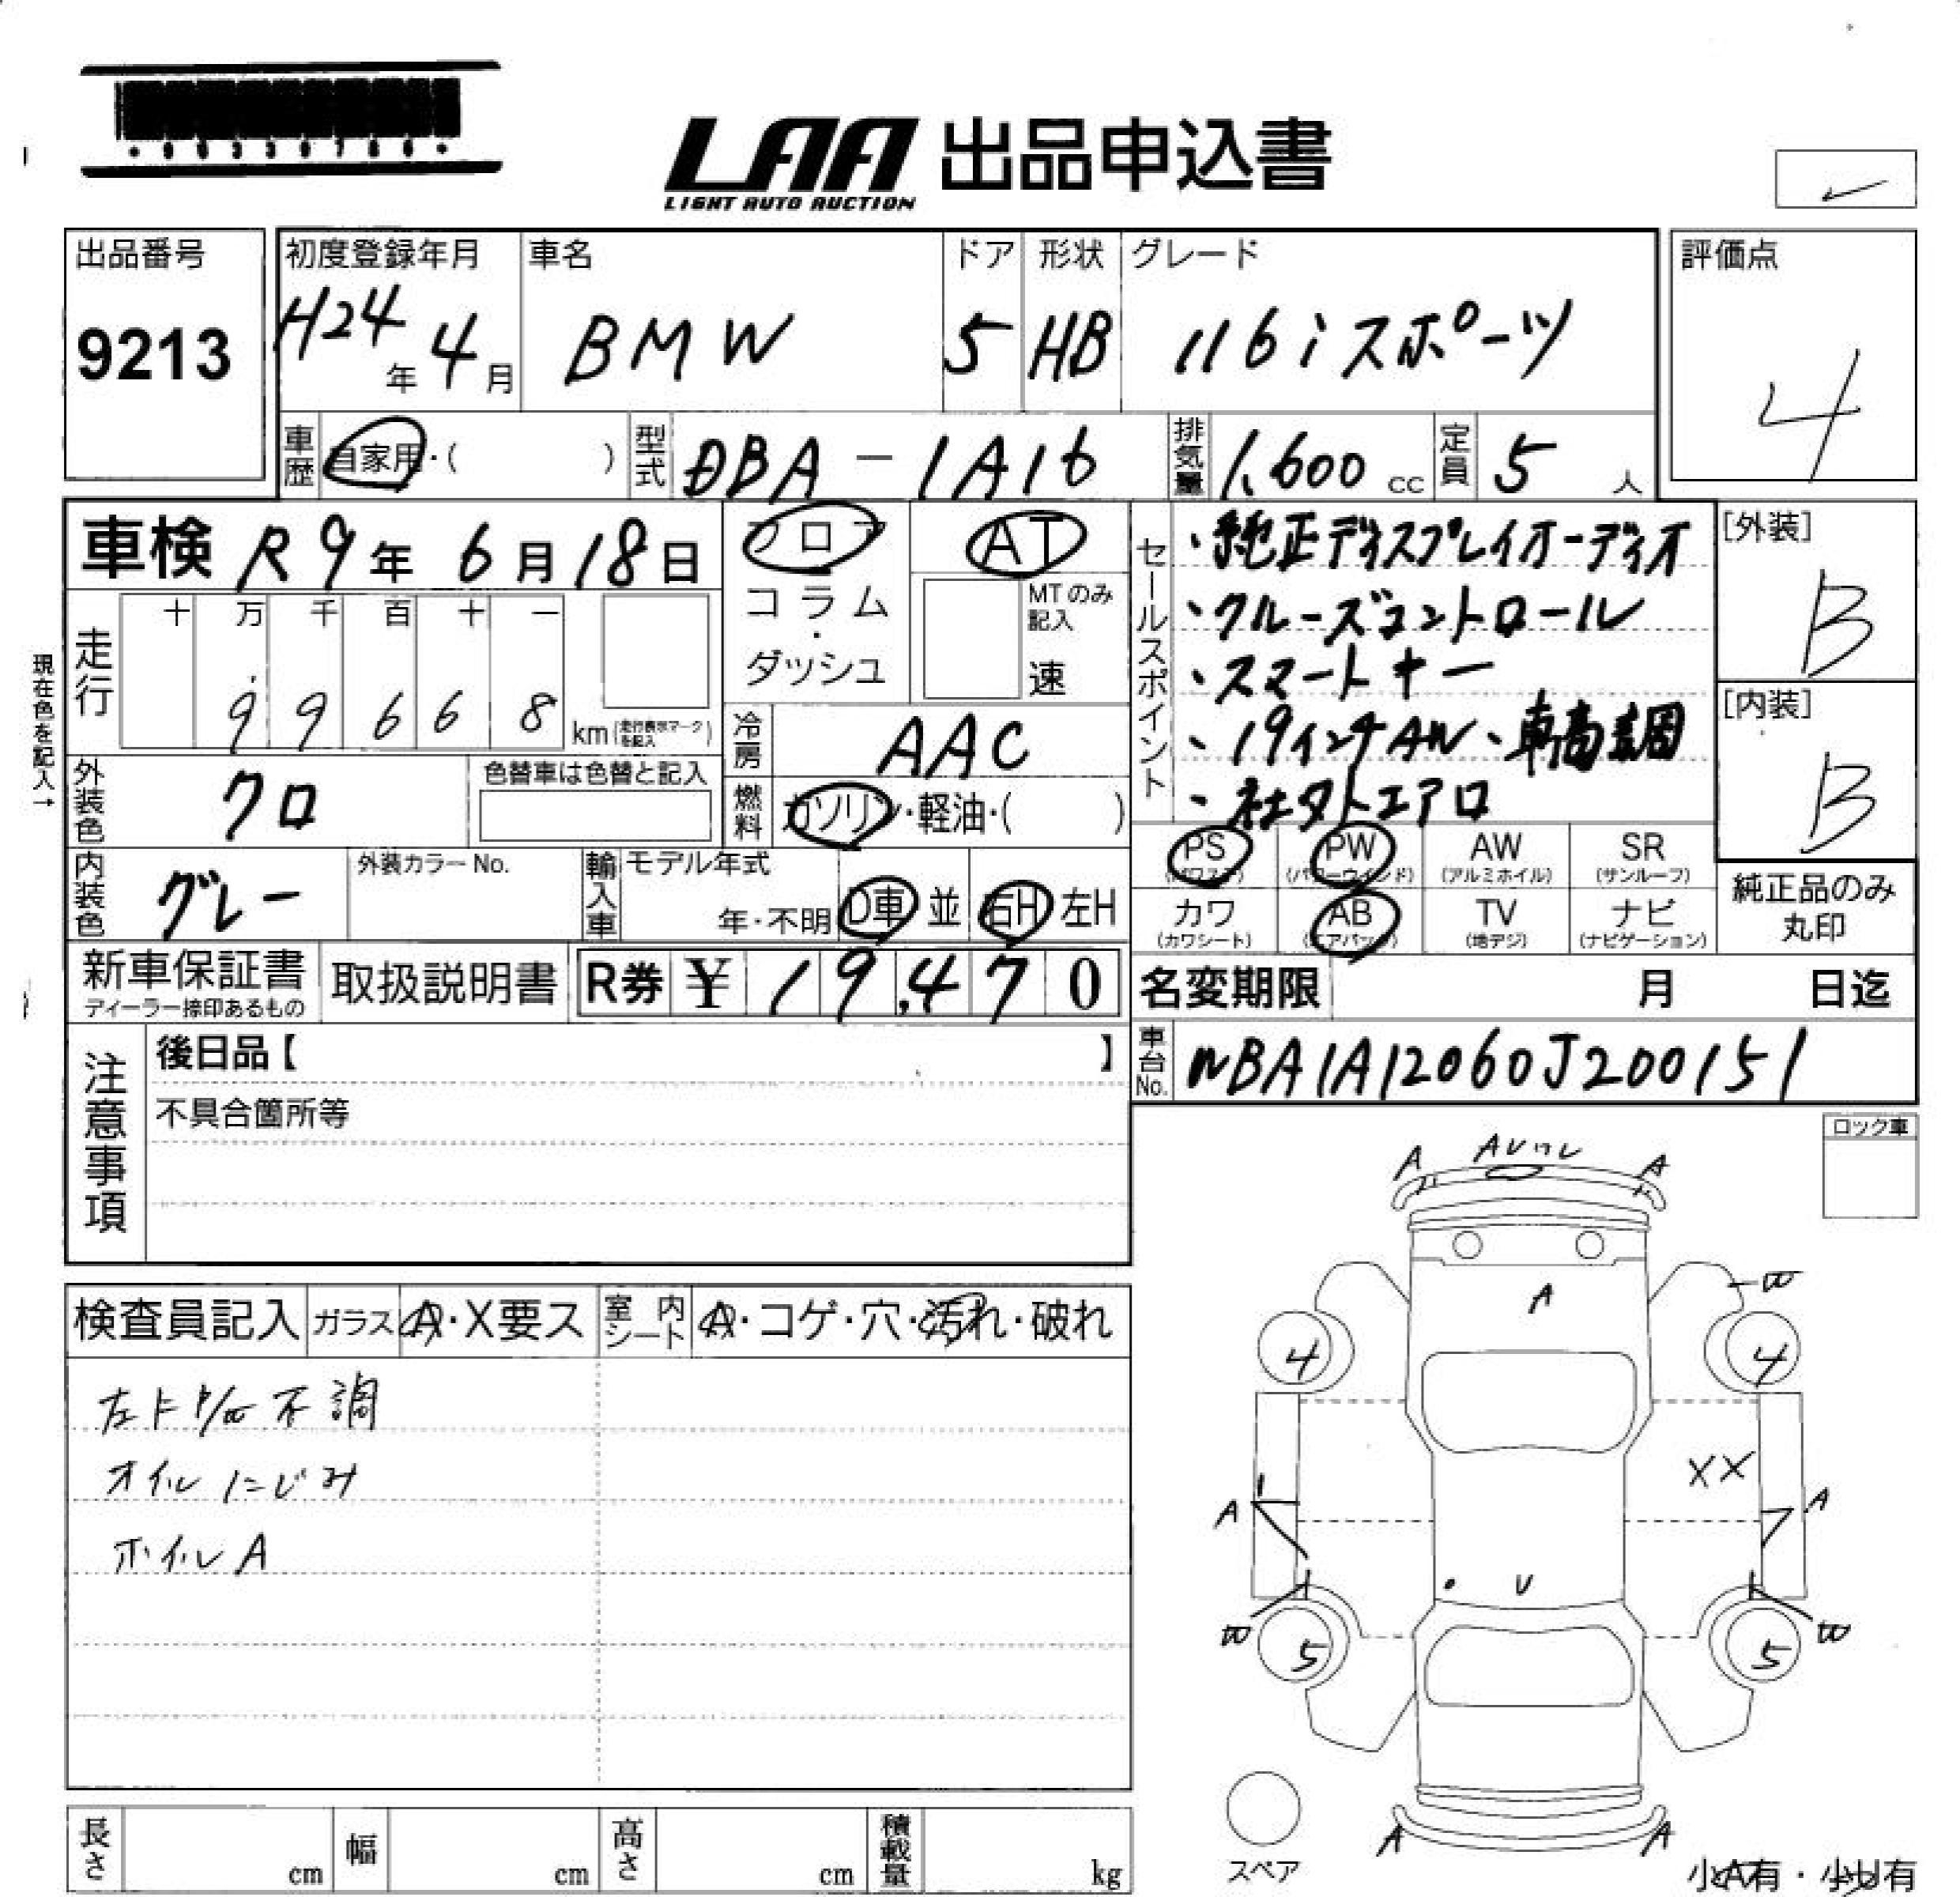 LAA 出品申込書
LIGHT AUTO AUCTION
出品番号
9213
初度登録年月
H24年 4月
車名
BMW
ドア
5
形状
HB
グレード
116iスポーツ
評価点
4
車歴
自家用・( )
型式
DBA-1A16
排気量
1,600 cc
定員
5 人
車検 R9年 6月 18日
フロア
コラム
・
ダッシュ
AT
MTのみ記入
速
セールスポイント
・純正ディスプレイオーディオ
・クルーズコントロール
・スマートキー
・19インチAW、車高調
・社外エアロ
[外装]
B
[内装]
B
現在色を記入→
走行
十 万 千 百 十 一
9 9 6 6 8
km (走行表示マークを記入)
冷房
AAC
外装色
クロ
色替車は色替と記入
燃料
ガソリン・軽油・( )
PS
(パワステ)
PW
(パワーウインド)
AW
(アルミホイル)
SR
(サンルーフ)
カワ
(カワシート)
AB
(エアバッグ)
TV
(地デジ)
ナビ
(ナビゲーション)
純正品のみ
丸印
内装色
グレー
外装カラーNo.
輸入車
モデル年式
年・不明
D車 並 右H 左H
新車保証書
ディーラー捺印あるもの
取扱説明書
R券 ¥ 19,470
名変期限 月 日迄
注意事項
後日品【 】
不具合箇所等
車台No.
WBA1A12060J200151
ロック車
A AVワレ A
A
W
4 4
XX
A A
・ V
W W
5 5
A A
スペア
小A有・小U有
検査員記入 ガラス A・X要ス 室内シート A・コゲ・穴・汚れ・破れ
不調
オイルにじみ
ホイルA
長さ cm 幅 cm 高さ cm 積載量 kg